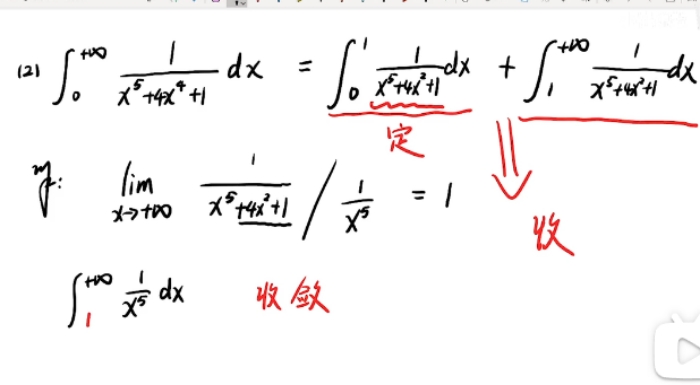 (2) ∫₀^{+∞} 1/(x⁵+4x⁴+1) dx = ∫₀¹ 1/(x⁵+4x²+1) dx + ∫₁^{+∞} 1/(x⁵+4x²+1) dx
定
lim_{x→+∞} 1/(x⁵+4x²+1) / 1/x⁵ = 1
收
∫₁^{+∞} 1/x⁵ dx 收敛